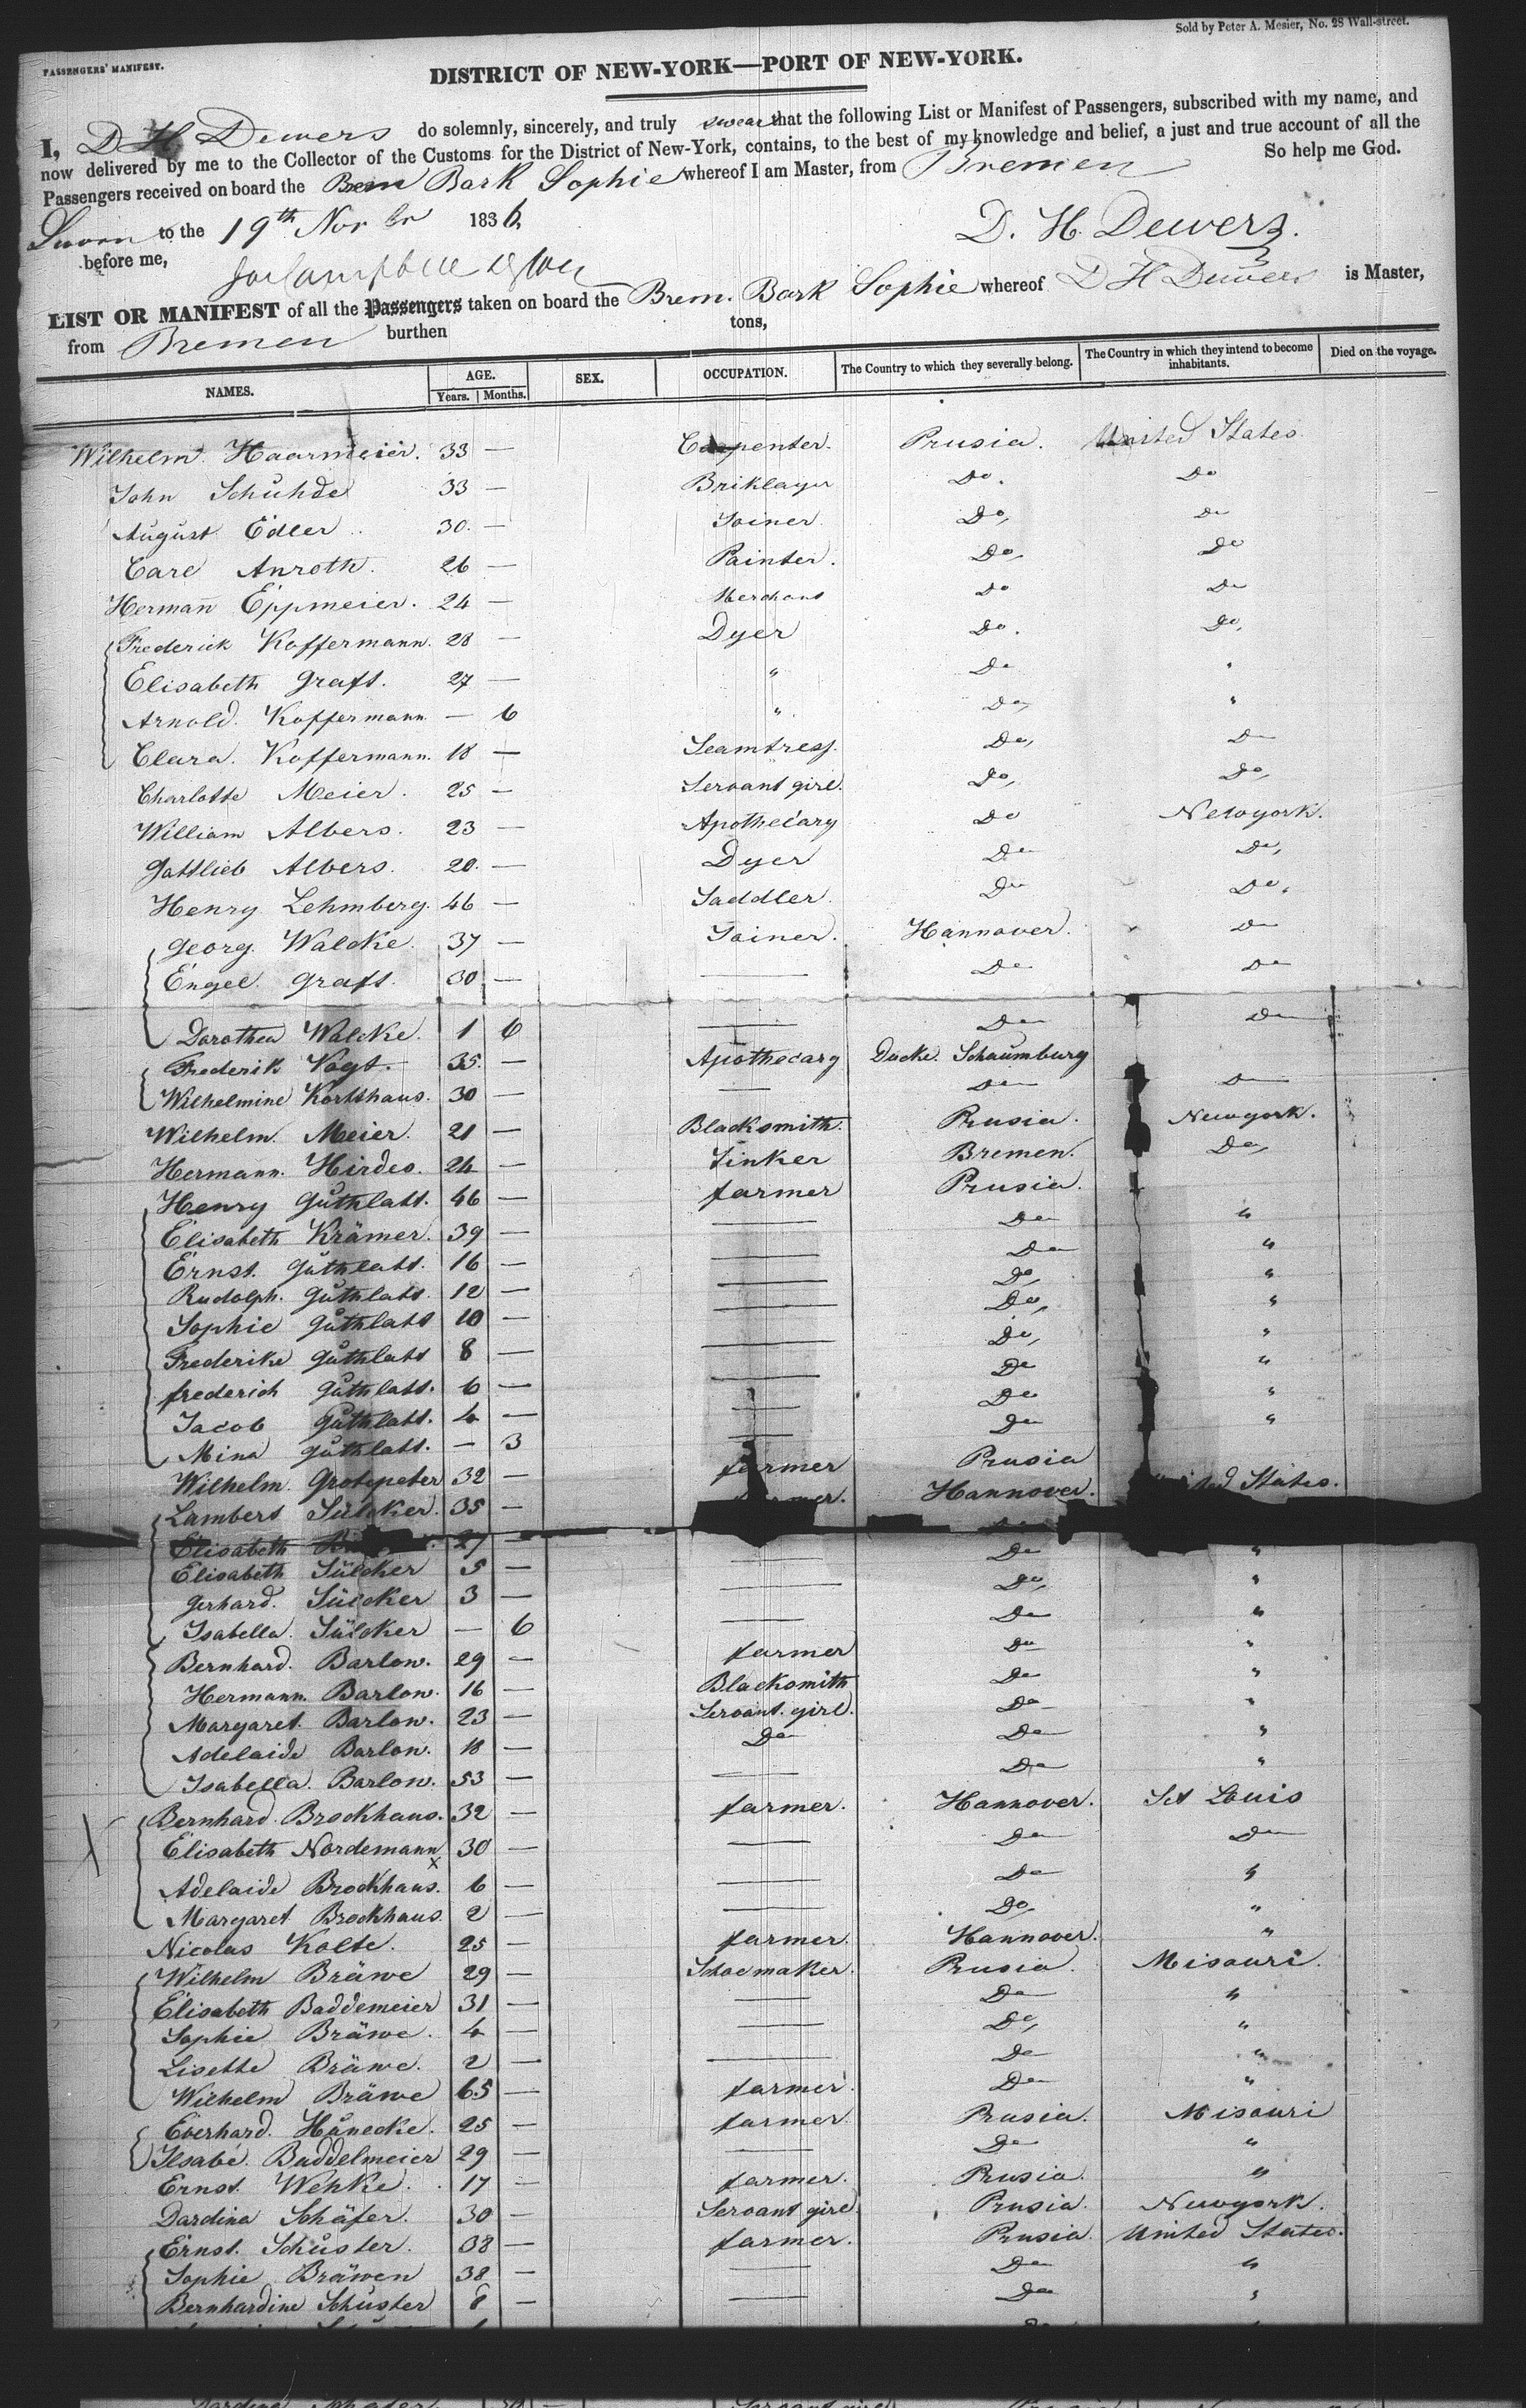 Sold by Peter A. Mesier, No. 28 Wall-street.
PASSENGERS' MANIFEST.
DISTRICT OF NEW-YORK—PORT OF NEW-YORK.
I, D H Dewers do solemnly, sincerely, and truly swear that the following List or Manifest of Passengers, subscribed with my name, and
now delivered by me to the Collector of the Customs for the District of New-York, contains, to the best of my knowledge and belief, a just and true account of all the
Passengers received on board the Brem Bark Sophie whereof I am Master, from Bremen So help me God.
Sworn to the 19th Novbr 1836
before me, D. H. Dewers.
LIST OR MANIFEST of all the Passengers taken on board the Brem. Bark Sophie whereof D H Dewers is Master,
from Bremen burthen tons,
NAMES. AGE. Years. Months. SEX. OCCUPATION. The Country to which they severally belong. The Country in which they intend to become inhabitants. Died on the voyage.
Wilhelm Haarmeier. 33 — Carpenter. Prusia. United States.
John Schuhde 33 — Briklayer Do. Do
August Edler 30. — Joiner Do, Do
Carl Anroth. 26 — Painter. Do, Do
Hermañ Eppmeier. 24 — Merchant Do Do
Frederick Koffermann. 28 — Dyer Do. Do,
Elisabeth Graft. 27 — " Do "
Arnold. Koffermann — 6 " Do, "
Clara. Koffermann. 18 — Seamtress. Do, Do
Charlotte Meier. 25 — Servant girl. Do, Do,
William Albers. 23 — Apothecary Do Newyork.
Gottlieb Albers. 20. — Dyer Do Do,
Henry Lehmberg. 46 — Saddler. Do Do.
Georg. Walcke. 37 — Joiner. Hannover. Do
Engel. Graft. 30 — — Do Do
Dorothea Walcke. 1 6 — Do Do
Frederik Vogt. 35. — Apothecary Ducke. Schaumburg
Wilhelmine Kortshaus. 30 — — Do Do
Wilhelm. Meier. 21 — Blacksmith. Prusia. Newyork.
Hermann. Hirdes. 24 — Tinker Bremen. Do,
Henry Guthlatt. 46 — farmer Prusia.
Elisabeth Krämer. 39 — — Do "
Ernst. Guthlatt. 16 — — Do "
Rudolph. Guthlatt. 12 — — Do, "
Sophie Guthlatt 10 — — Do, "
Frederike Guthlatt 8 — — Do, "
frederich Guthlatt. 6 — — Do "
Jacob Guthlatt. 4 — — Do "
Mina Guthlatt. — 3 — Do "
Wilhelm. Grotepeter 32 — farmer Prusia
Lambert Sülcker. 35 — Hannover. States.
Elisabeth 27 —
Elisabeth Sülcker 5 — — Do "
Gerhard. Sülcker 3 — — Do, "
Isabella. Sülcker — 6 — Do "
Bernhard. Barlow. 29 — farmer Do "
Hermann. Barlow. 16 — Blacksmith Do "
Margaret. Barlow. 23 — Servant. girl. Do "
Adelaide Barlow. 18 — Do Do "
Isabella. Barlow. 53 — — Do "
Bernhard. Brockhaus. 32 — farmer. Hannover. St Louis
Elisabeth Nordemann 30 — — Do Do
Adelaide Brockhaus. 6 — — Do "
Margaret Brockhaus. 2 — — Do. "
Nicolas Kolte. 25 — farmer. Hannover. "
Wilhelm Bräwe 29 — Schoemaker. Prusia. Misouri.
Elisabeth Baddemeier 31 — — Do "
Sophie Bräwe. 4 — — Do, "
Lisette Bräwe. 2 — — Do "
Wilhelm Bräwe 65 — farmer. Do "
Everhard. Hånecke. 25 — farmer. Prusia. Misouri
Ilsabe. Buddelmeier 29 — — Do "
Ernst. Wehke. 17 — farmer. Prusia. "
Dardina Schäfer. 30 — Servant girl. Prusia. Newyork.
Ernst. Schuster. 38 — farmer. Prusia. United States.
Sophie Bräwen 38 — — Do "
Bernhardine Schuster 8 — — Do "
Dardina Schäfer